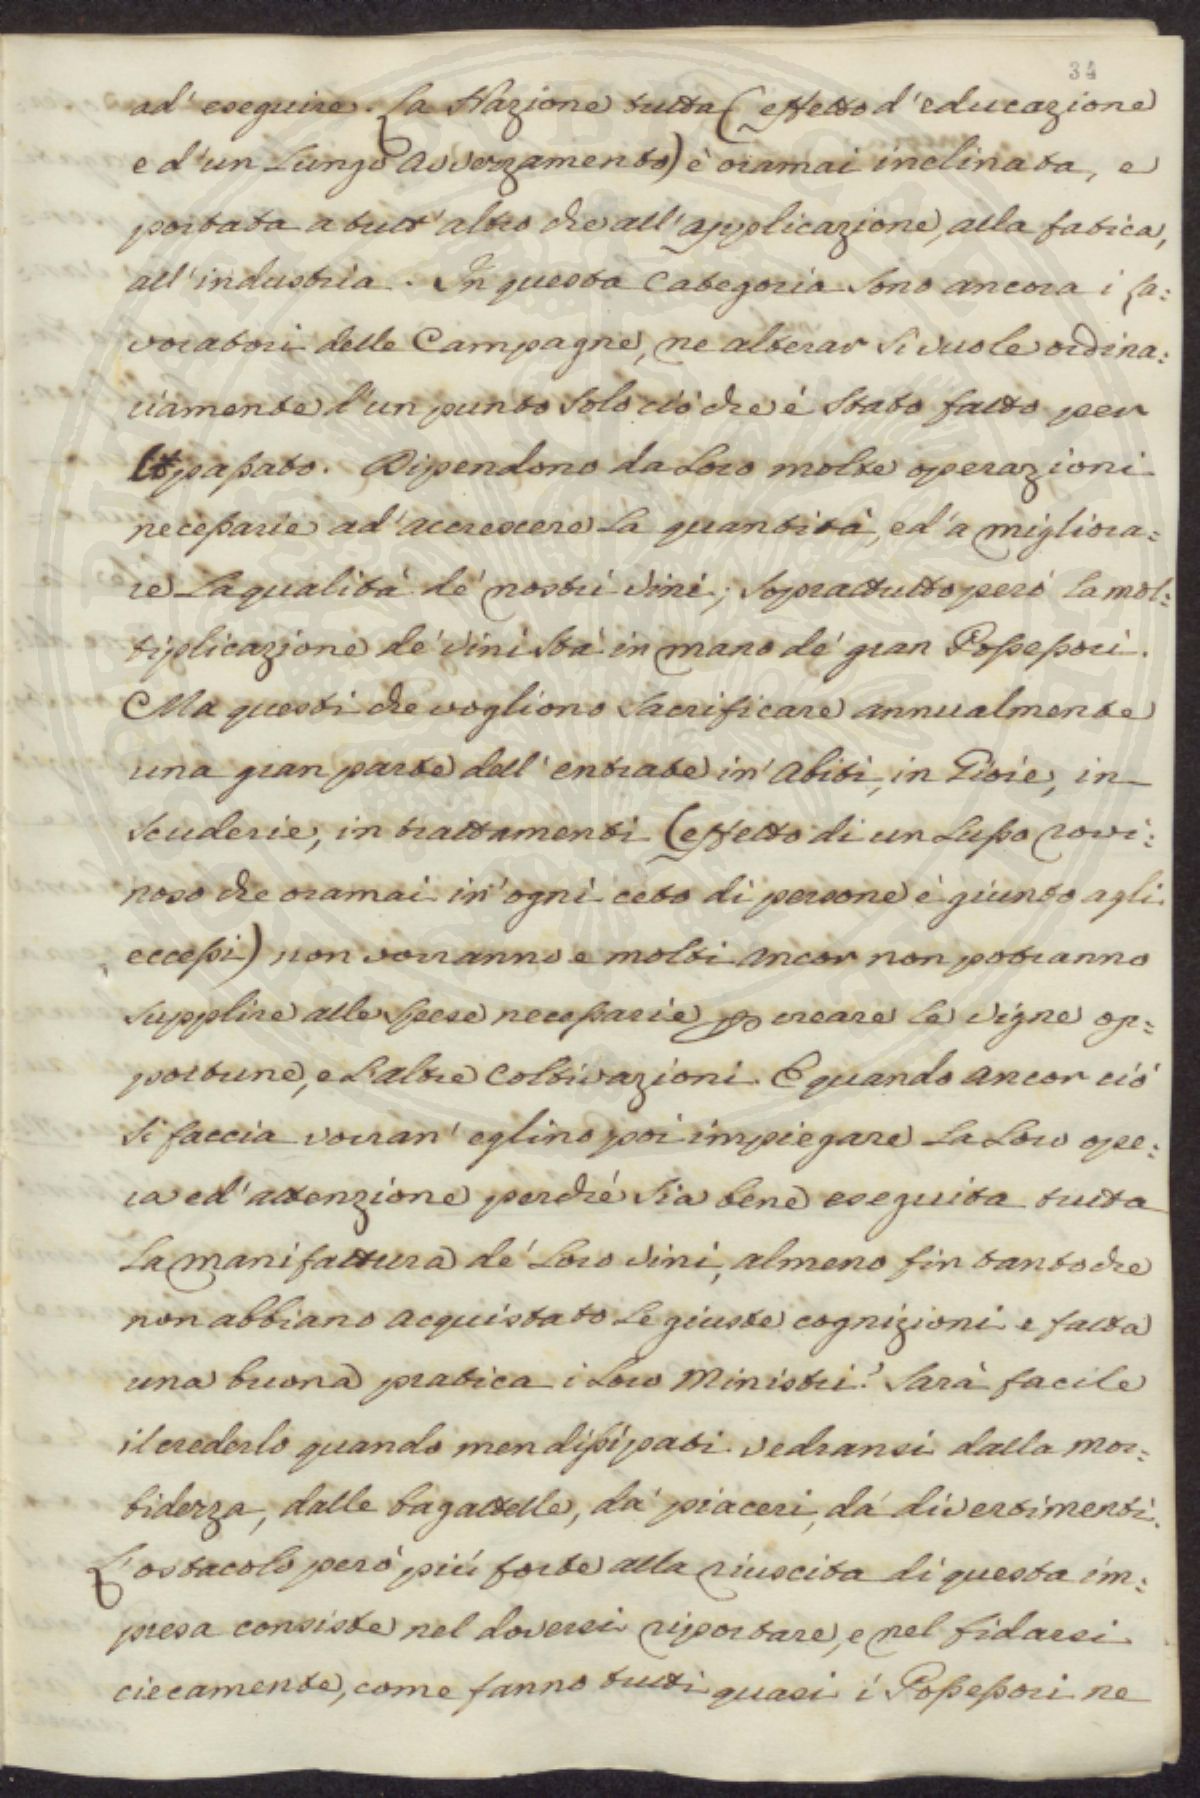 34
ad' eseguire. La Nazione tutta (effetto d'educazione
e d'un Lungo Avvezzamento) è oramai inclinata, e
portata a tutt' altro che all' applicazione, alla fatica,
all' industria. In questa Categoria sono ancora i La:
voratori delle Campagne, ne alterar si vuole ordina:
riamente d'un punto solo ciò che è stato fatto per
passato. Dipendono da Loro molte operazioni
necessarie ad' accrescere La quantità, ed' a migliora:
re La qualità de' nostri vini; soprattutto però La mol:
tiplicazione de' vini sta in mano de' gran Possessori.
Ma questi che vogliono sacrificare annualmente
una gran parte dell' entrate in' Abiti, in Gioie, in
scuderie, in trattamenti (effetto di un Lusso rovi:
noso che oramai in' ogni ceto di persone è giunto agli
eccessi) non vorranno e molti ancor non potranno
supplire alle spese necessarie p creare Le vigne op:
portune, e L'altre Coltivazioni. E quando ancor ciò
si faccia vorran' eglino poi impiegare La Loro ope:
ra ed' attenzione perchè sia bene eseguita tutta
La manifattura de' Loro vini, almeno fin tanto che
non abbiano acquistato Le giuste cognizioni e fatta
una buona pratica i Loro Ministri? Sarà facile
il crederlo quando men dissipati vedransi dalla mor:
bidezza, dalle bagattelle, da' piaceri, da' divertimenti.
L'ostacolo però più forte alla riuscita di questa im:
presa consiste nel doversi riportare, e nel fidarsi
ciecamente, come fanno tutti quasi i Possessori ne